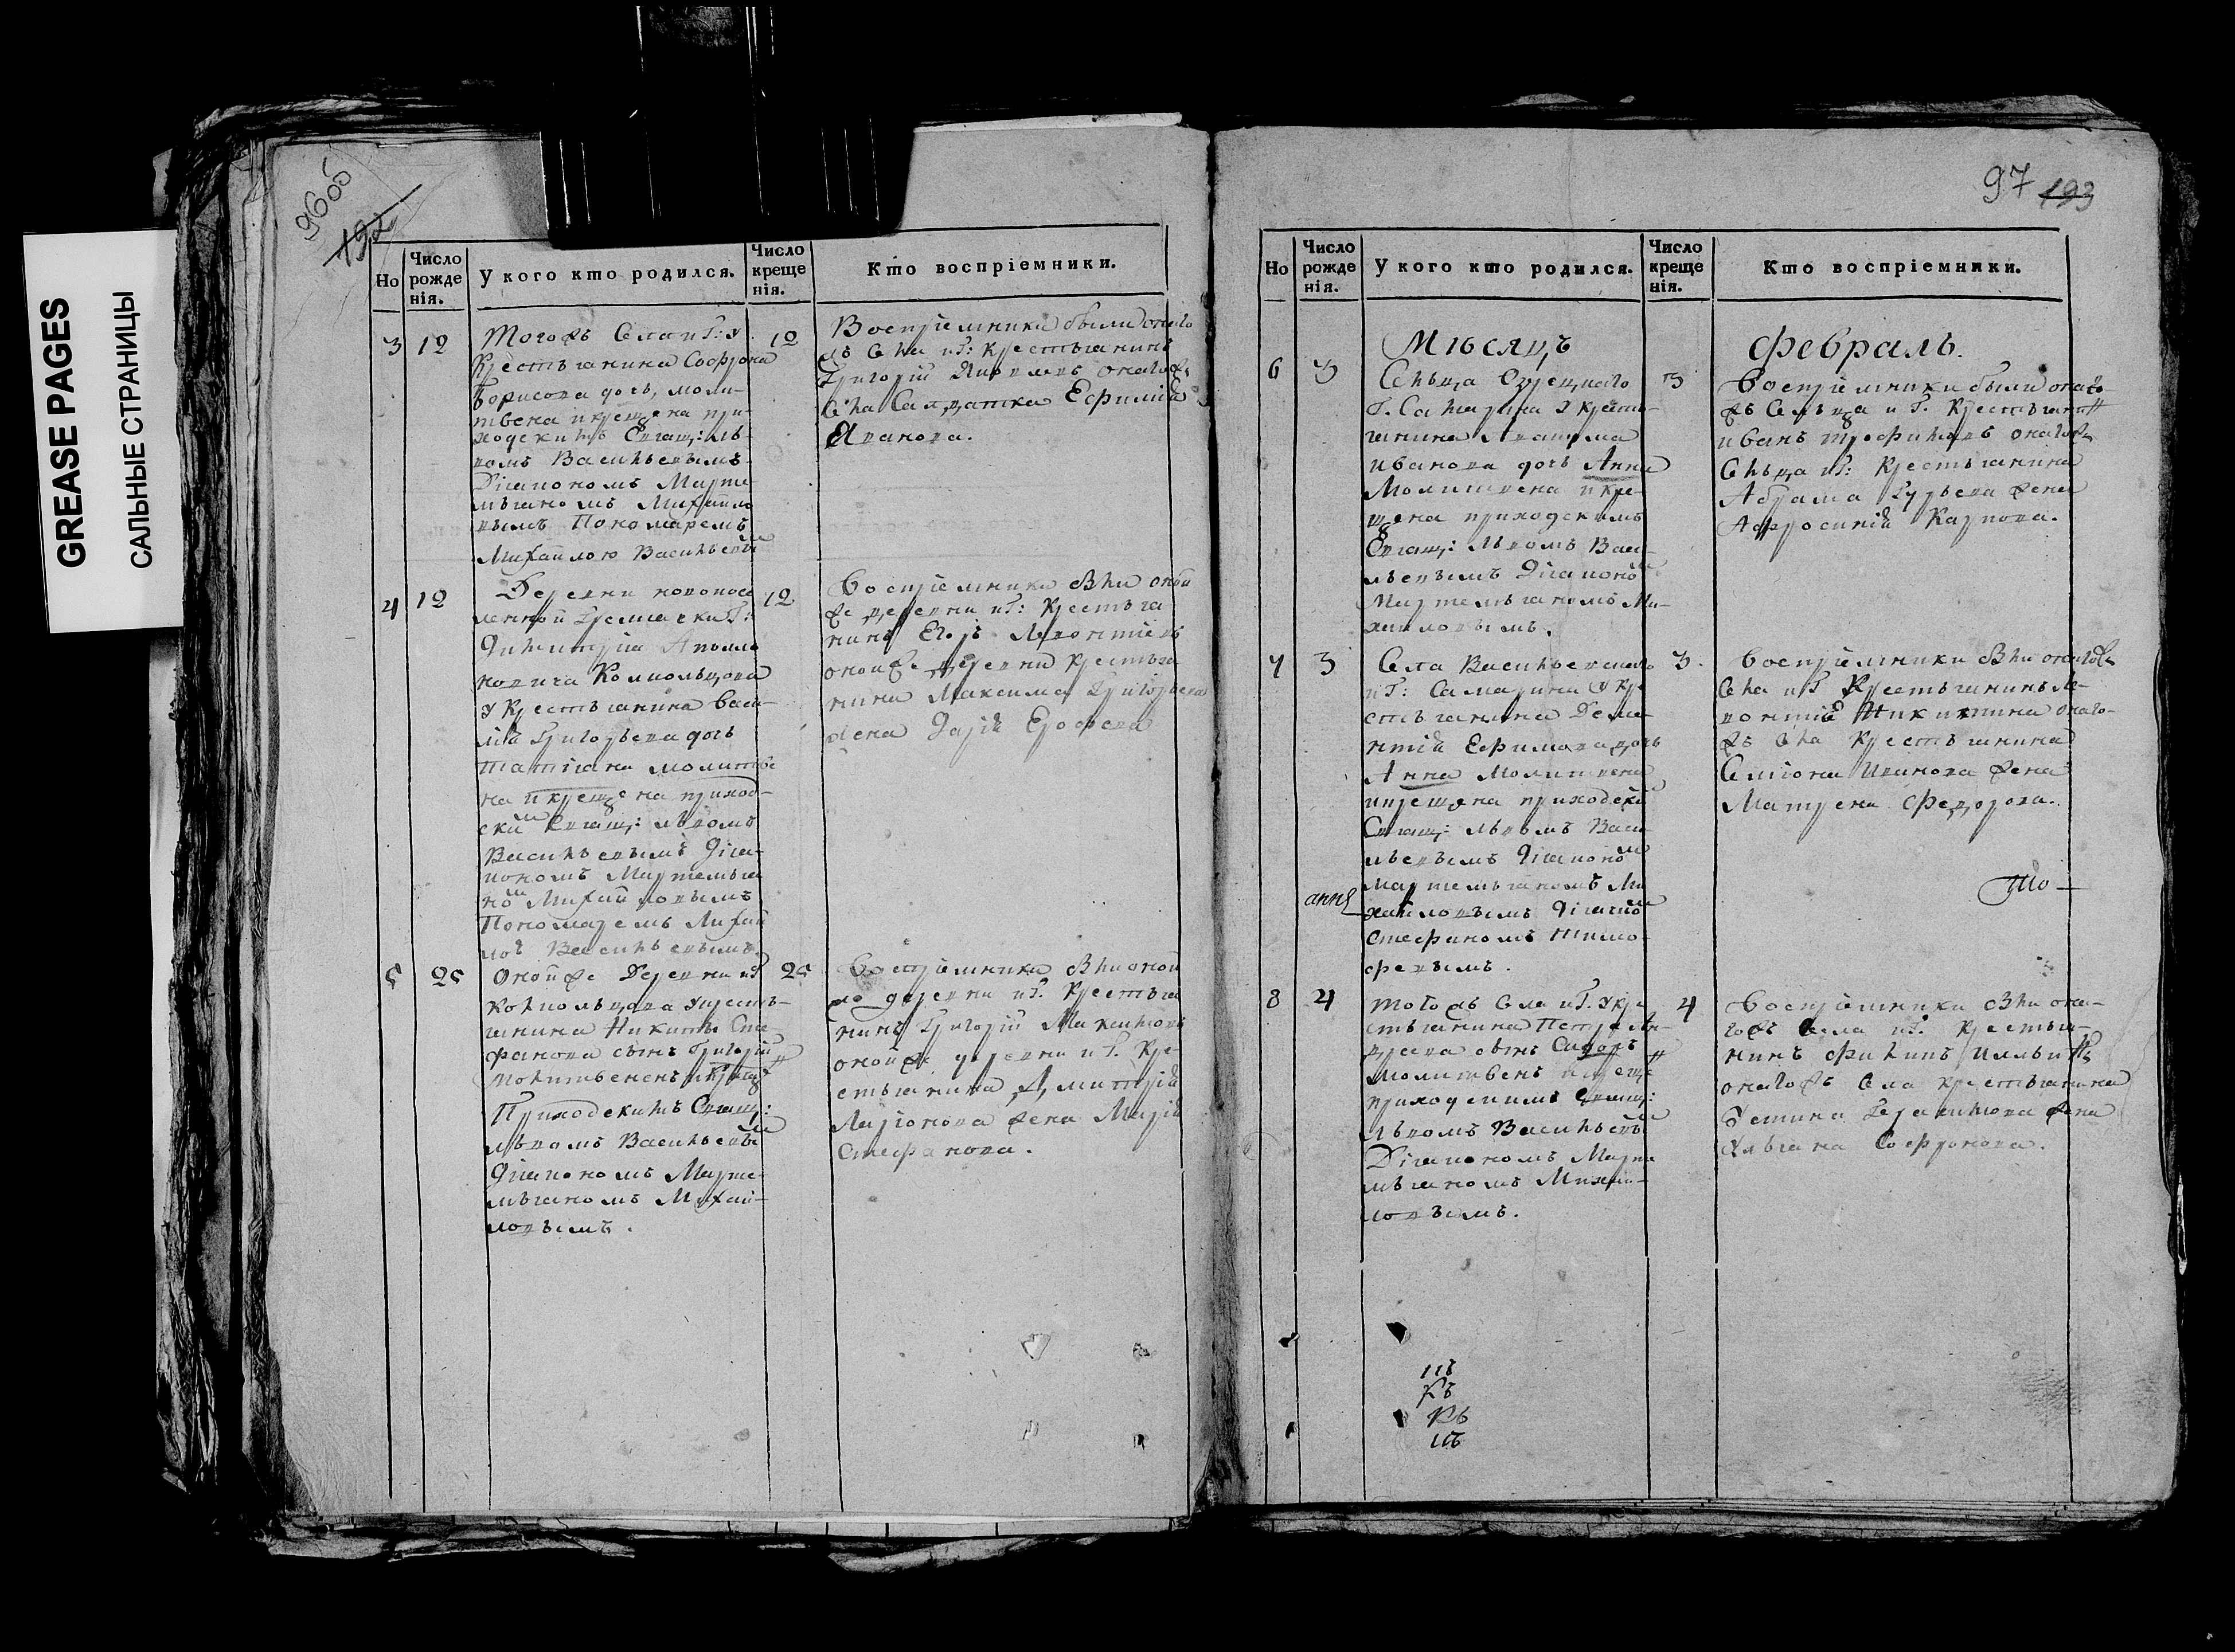 GREASE PAGES
САЛЬНЫЕ СТРАНИЦЫ
96об
Но
Число рожде нія.
У кого кто родился.
Число креще нія.
Кто воспріемники.
3 12
Тогожъ Села и Г: у
Крестьянина Софрона
Борисова дочь, моли-
твена и крещена при-
ходскимъ Свящ: Ль-
вомъ Васильевымъ
Діакономъ Марте-
мьяномъ Михайло
вымъ Пономаремъ
Михайлою Васильевы
12
Воспріемники были онаго
жъ Села и Г: Крестьянинъ
Григорій Яковлевъ онагожъ
Села Салдатка Ефимія
Иванова.
4 12
Деревни новопосе
ленной Гремячки Г:
Димитрія Аполло
новича Колмольцова
у Крестьянина Васи-
лія Григорьева дочь
Татіана молитве
на и крещена приход-
ски Свящ: Львомъ
Васильевымъ Діа-
кономъ Мартемья
но Михайловымъ
Пономаремъ Михай
ло Васильевымъ
12
Воспріемники были оной
же деревни и Г: Крестья
нинъ Егоръ Леонтіевъ
онойже деревни крестья
нина Максима Григорьева
жена Дарія Ерофеева
5 25
онойже Деревни и Г
Колмольцова у крестъ-
янина Никиты Сте
фанова сынъ Григорій
молитвененъ и креще
Приходскимъ Свящ:
Львомъ Васильевы
Діакономъ Марте-
мьяномъ Михай-
ловымъ.
25
Воспріемники были оной
же деревни и Г. Крестья
нинъ Григорій Максимовъ
онойже деревни и Г. Кре-
стьянина Димитрія
Ларіонова жена Марія
Стефанова.
97 193
Но
Число рожде нія.
У кого кто родился.
Число креще нія.
Кто воспріемники.
Мѣсяцъ
Февраль.
6 3
Сельца Озрецкаго
Г. Самарина у кресть-
янина
Иванова дочь Анна
Молитвена и кре-
щена приходскимъ
Свящ: Львомъ Васи-
льевымъ Діаконо
Мартемьяномъ Ми-
хайловымъ.
3
Воспріемники были онаго-
жъ Сельца и Г. Крестьянинъ
Иванъ Трофимовъ онагожъ
Сельца и Г: Крестьянина
Абрама Гурьева жена
Афросинія Карпова.
7 3
Села Васильевскаго
и Г: Самарина у Кре
стьянина Деме-
нтія Ефимова дочь
Анна Молитвена
и крещена приходски
Свящ: Львомъ Васи-
льевымъ Діаконо
Мартемьяномъ Ми
хайловымъ
Стефаномъ Тимо-
феевымъ.
анны
3.
Воспріемники были онагожъ
Села и Г Крестьянинъ Ле-
онтій Никитинъ онаго-
жъ Села Крестьянина
Симіона Иванова жена
Матрена Федорова.
То-
8 4
Тогожъ Села и Г. у кре
стьянина Петра Ан-
дреева сынъ Сидоръ
Молитвенъ и креще
приходскимъ Свящ:
Львомъ Васильевы
Діакономъ Марте
мьяномъ Михай-
ловымъ.
4
Воспріемники были она-
гожъ Села и Г. Крестья-
нинъ Филипъ Ильинъ
онагожъ Села крестьянина
Герасимова жена
Ульяна Софронова.